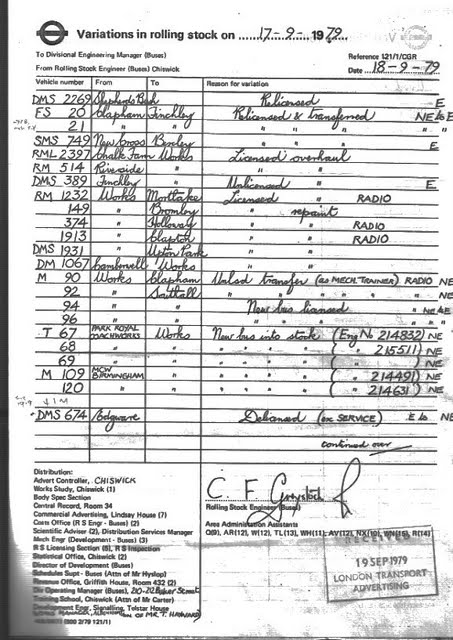 Variations in rolling stock on 17-9-1979.
To Divisional Engineering Manager (Buses) Reference 121/1/CGR
From Rolling Stock Engineer (Buses) Chiswick Date 18-9-79
Vehicle number From To Reason for variation
DMS 2269 Shepherds Bush Relicensed E
FS 20 Clapham Finchley Relicensed & transferred NE to E
21 " " " " "
SMS 749 New Cross Bexley " " " E
RML 2397 Chalk Farm Works Licensed overhaul
RM 514 Riverside " " "
DMS 389 Finchley Unlicensed E
RM 1232 Works Mortlake Licensed " RADIO
149 " Bromley " repaint
374 " Holloway " " RADIO
1913 " Clapton " " RADIO
DMS 1931 " Upton Park " "
DM 1067 Camberwell Works " "
M 90 Works Clapham Unlcsd transfer (as MECH. TRAINER) RADIO NE
92 " Southall " " " " " NE
94 " " New bus licensed NE to E
96 " " " " " NE
T 67 PARK ROYAL COACHWORKS Works New bus into stock (Eng No 214832) NE
68 " " " " " ( " 215511) NE
69 " " " " " NE
M 109 MCW BIRMINGHAM " " " " " ( " 214491) NE
120 " " " " " ( " 214631) NE
DMS 674 Edgware Delicensed (ex SERVICE) E to NE
continued over
Distribution:
Advert Controller, CHISWICK
Works Study, Chiswick (1)
Body Spec Section
Central Record, Room 34
Commercial Advertising, Lindsay House (7)
Costs Office (R S Engr - Buses) (2)
Scientific Adviser (2), Distribution Services Manager
Mech Engr (Development - Buses) (3)
R S Licensing Section (5), R S Inspection
Statistical Office, Chiswick (2)
Director of Development (Buses)
Schedules Supt - Buses (Attn of Mr Hyslop)
Revenue Office, Griffith House, Room 432 (2)
Div Operating Manager (Buses), 20-22 Baker Street
Training School, Chiswick (Attn of Mr Carter)
Development Engr, Signalling, Telstar House
C F
Rolling Stock Engineer (Buses)
Area Administration Assistants
Q(9), AR(12), W(12), TL(13), WH(11), AV(12), NX(10), WN(15), R(14)
19 SEP 1979
LONDON TRANSPORT
ADVERTISING